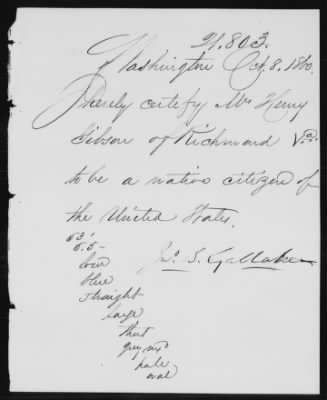 21.803.
Washington Oct. 8. 1860.
I hereby certify Mr Henry
Gibson of Richmond Va.
to be a native citizen of
the United States.
Jno. S. Gallaher
53
5.5
low
blue
straight
large
short
grey mxd
pale
oval